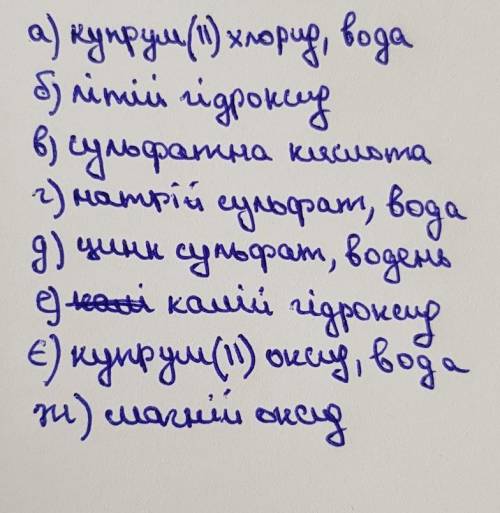 а) купрум(II) хлорид, вода
б) літій гідроксид
в) сульфатна кислота
г) натрій сульфат, вода
д) цинк сульфат, водень
е) калій гідроксид
є) купрум(II) оксид, вода
ж) магній оксид